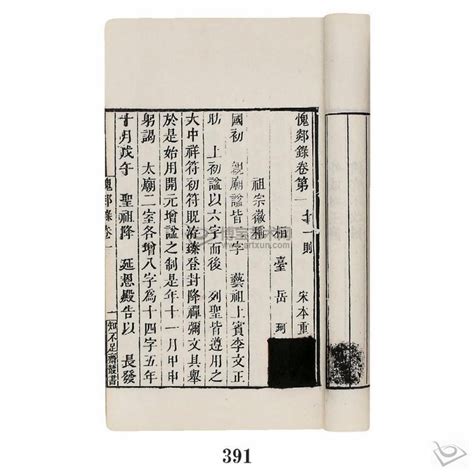 愧郯錄卷第一 十一則 宋本重
相臺岳珂
祖宗徽稱
國初 親廟諡皆二字 藝祖上賓李文正
昉 上初諡以六字而後 列聖皆遵用之
大中祥符初符既洽登封降禪彌文具舉
於是始用開元增諡之制是年十一月甲申
躬謁 太廟二室各增八字為十四字五年
十月戊午 聖祖降 延恩殿告以 長發
愧郯錄卷一
一
知不足齋叢書
博宝艺术网
www.artxun.com
391